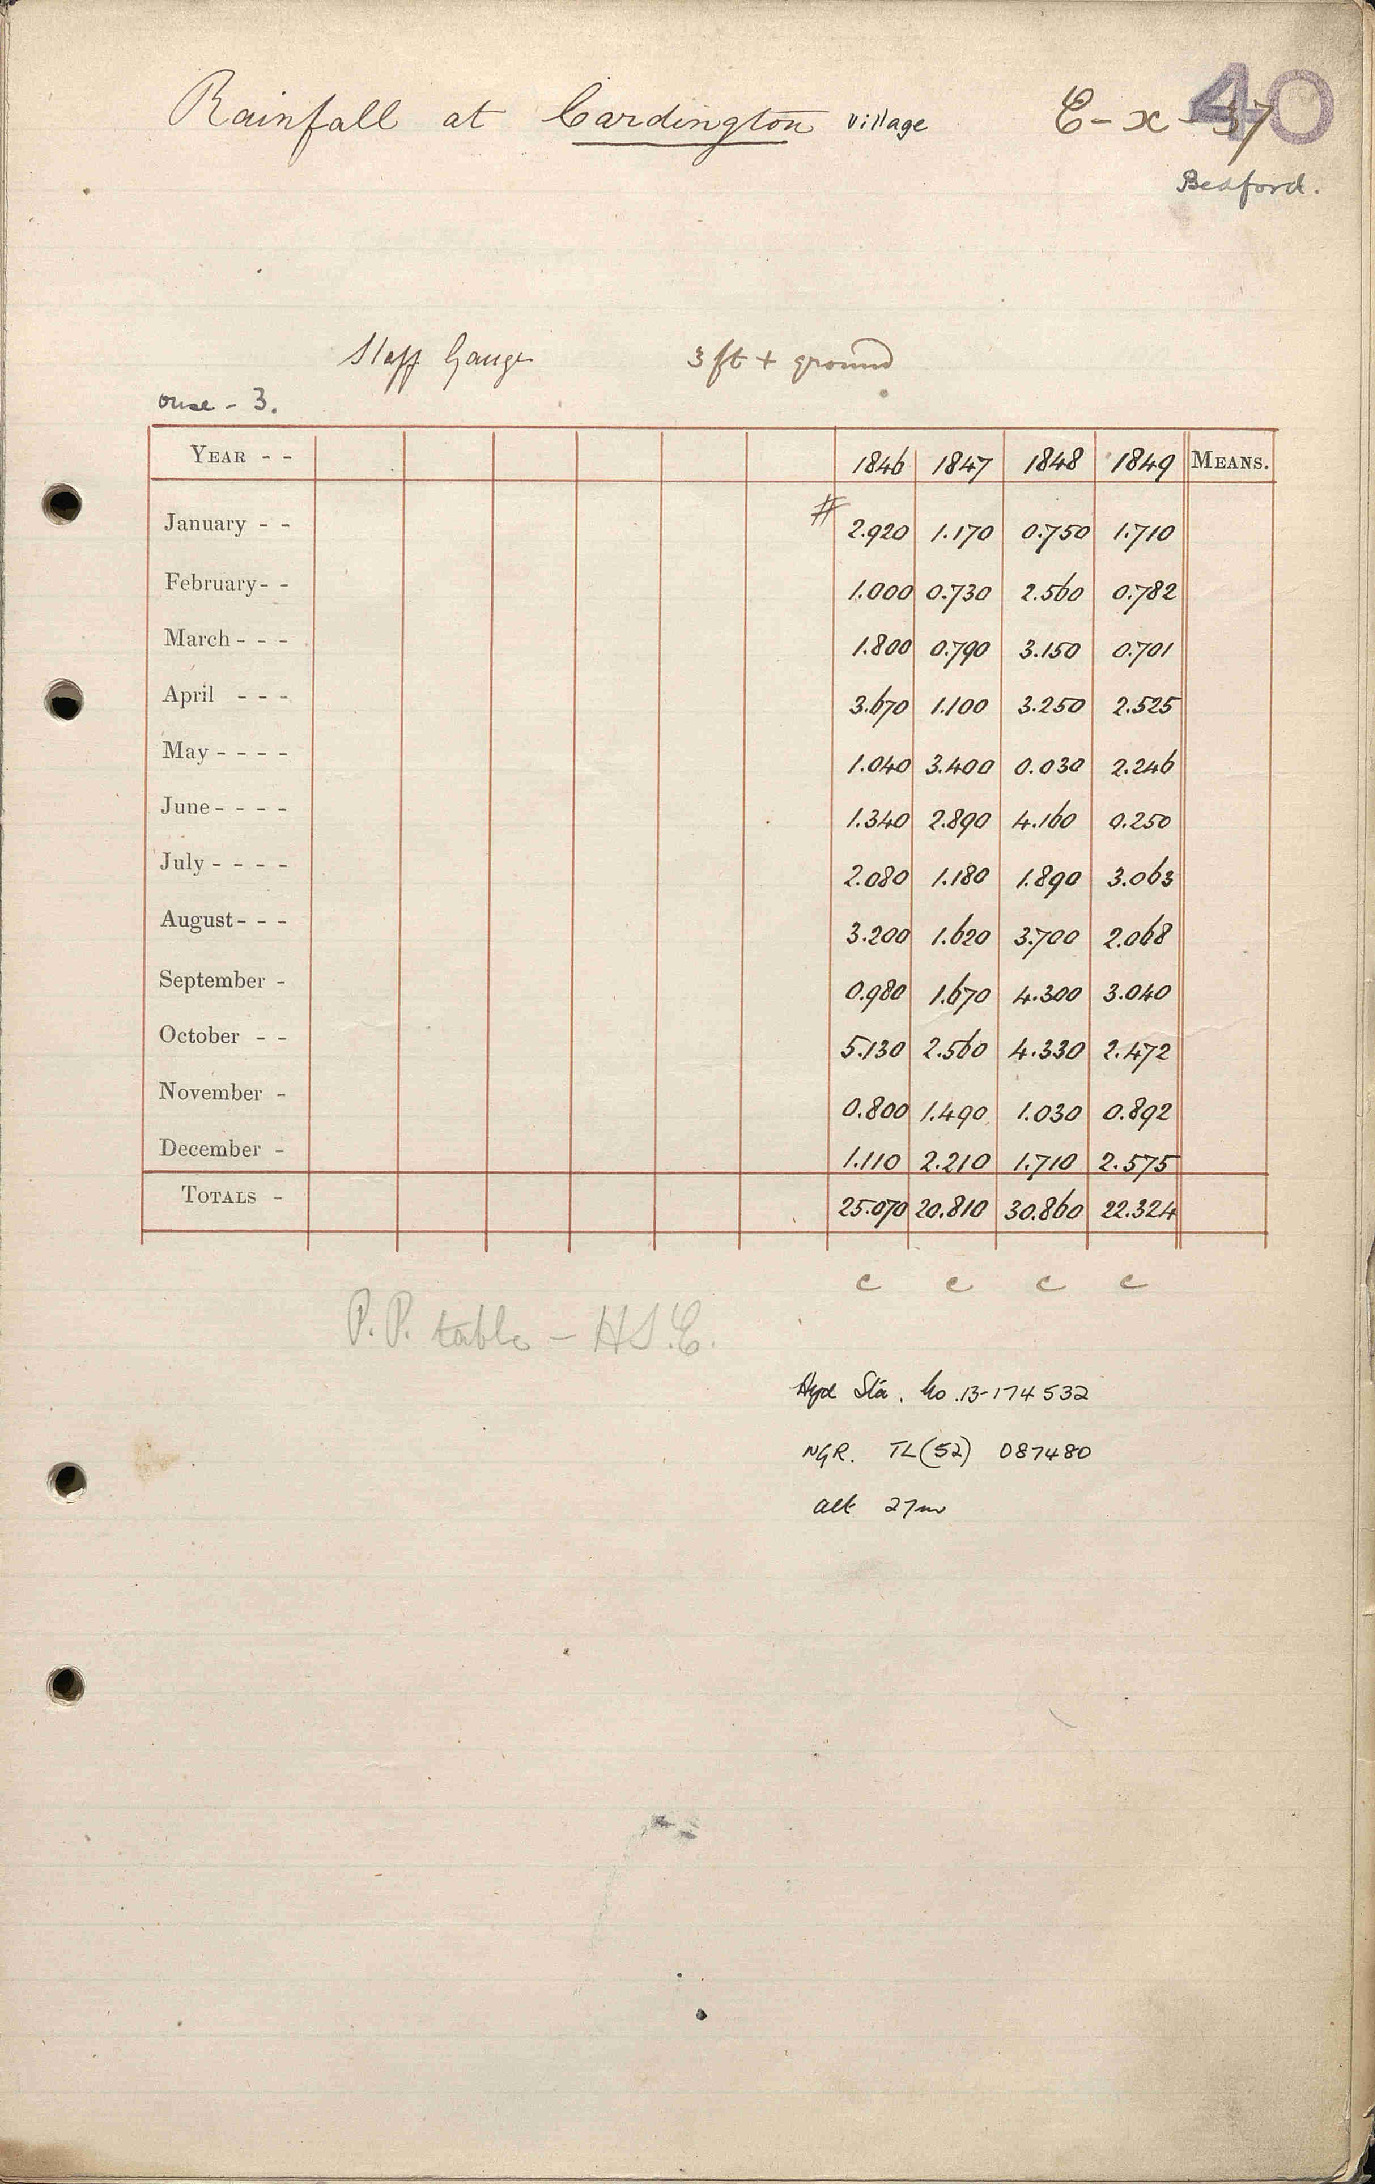 Rainfall at Cardington village E-x-37 40
Bedford.
Staff Gauge 3 ft + ground
ouse - 3.
YEAR - - 1846 1847 1848 1849 MEANS.
January - - # 2.920 1.170 0.750 1.710
February - - 1.000 0.730 2.560 0.782
March - - - 1.800 0.790 3.150 0.701
April - - - 3.670 1.100 3.250 2.525
May - - - - 1.040 3.400 0.030 2.246
June - - - - 1.340 2.890 4.160 0.250
July - - - - 2.080 1.180 1.890 3.063
August - - - 3.200 1.620 3.700 2.068
September - 0.980 1.670 4.300 3.040
October - - 5.130 2.560 4.330 2.472
November - 0.800 1.490 1.030 0.892
December - 1.110 2.210 1.710 2.575
TOTALS - 25.070 20.810 30.860 22.324
c c c c
P.P. table - H.S.E.
Hyd Sta. No. 13-174532
NGR. TL(52) 087480
alt 27m